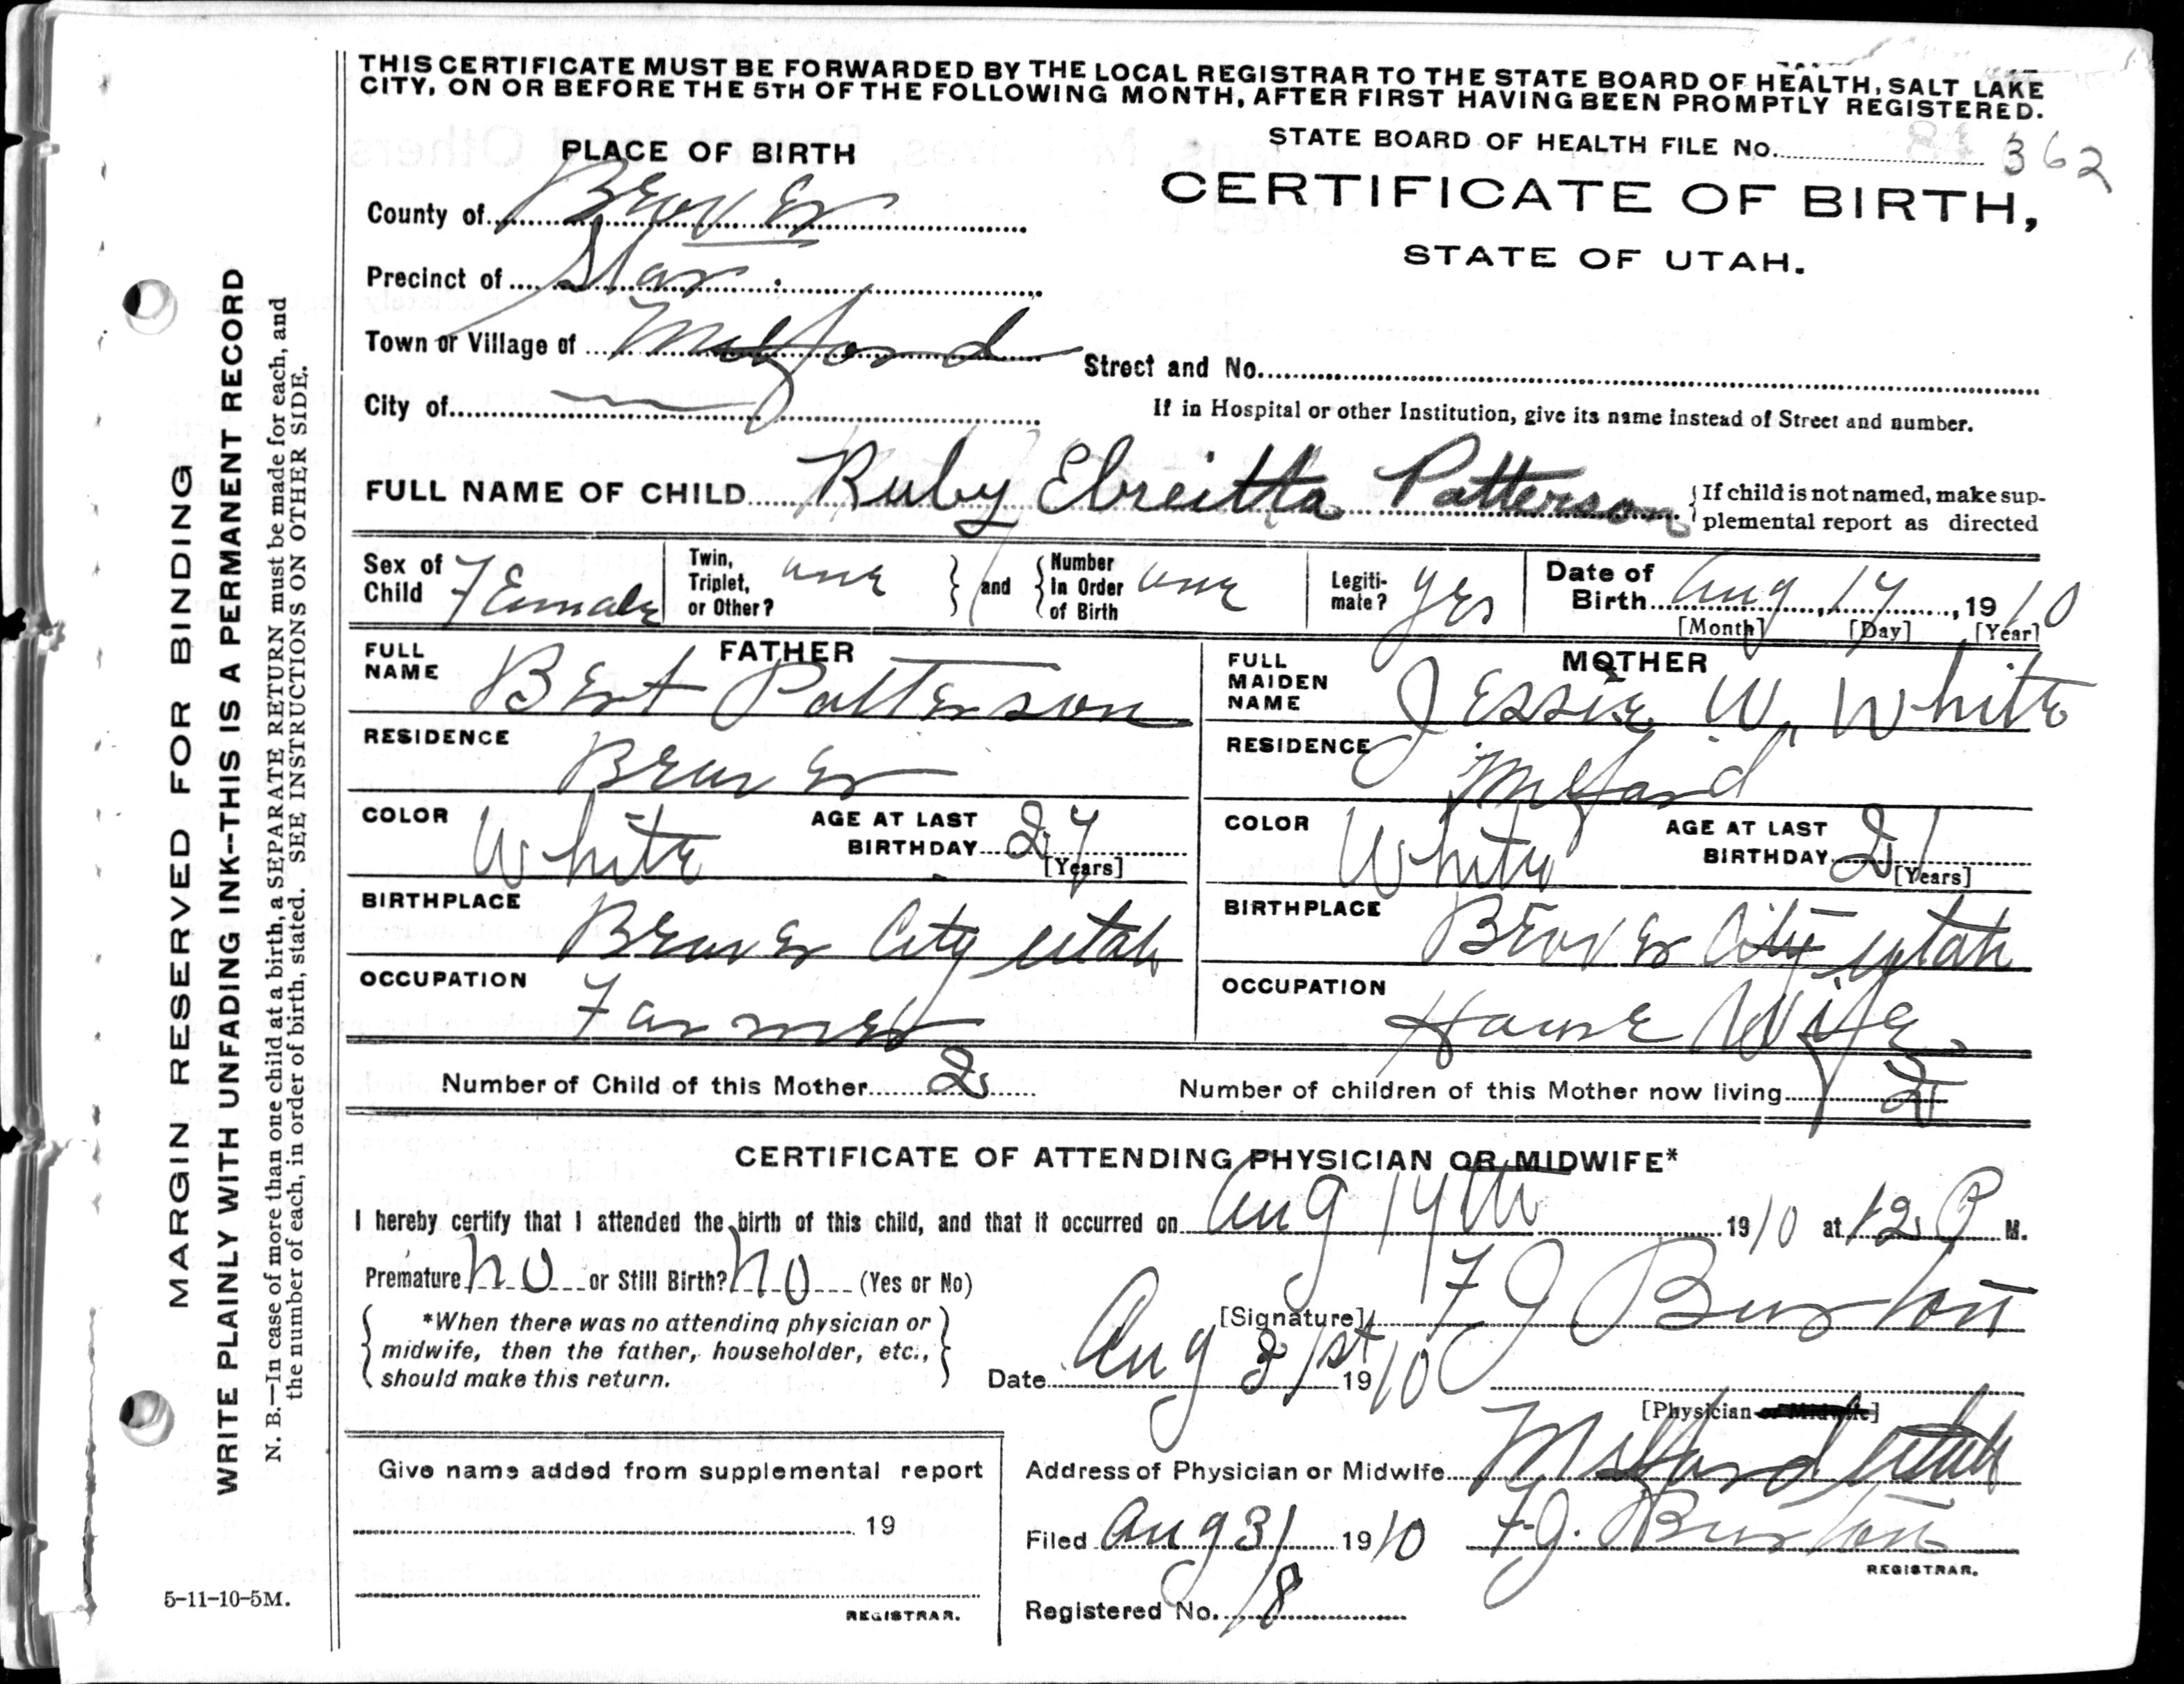 THIS CERTIFICATE MUST BE FORWARDED BY THE LOCAL REGISTRAR TO THE STATE BOARD OF HEALTH, SALT LAKE
CITY, ON OR BEFORE THE 5TH OF THE FOLLOWING MONTH, AFTER FIRST HAVING BEEN PROMPTLY REGISTERED.
STATE BOARD OF HEALTH FILE No. 362
CERTIFICATE OF BIRTH,
STATE OF UTAH.
PLACE OF BIRTH
County of Beaver
Precinct of Star
Town or Village of Milford
Street and No.
City of
If in Hospital or other Institution, give its name instead of Street and number.
FULL NAME OF CHILD Ruby Ebreitta Patterson
If child is not named, make sup-
plemental report as directed
Sex of Child Female
Twin, Triplet, or Other? one
and
Number In Order of Birth one
Legiti-mate? yes
Date of Birth Aug, 17, 1910
[Month] [Day] [Year]
FATHER
FULL NAME Bert Patterson
RESIDENCE Beaver
COLOR White
AGE AT LAST BIRTHDAY 27
[Years]
BIRTHPLACE Beaver City Utah
OCCUPATION Farmer
MOTHER
FULL MAIDEN NAME Jessie W. White
RESIDENCE Milford
COLOR White
AGE AT LAST BIRTHDAY 21
[Years]
BIRTHPLACE Beaver City Utah
OCCUPATION House Wife
Number of Child of this Mother 2
Number of children of this Mother now living 2
CERTIFICATE OF ATTENDING PHYSICIAN OR MIDWIFE*
I hereby certify that I attended the birth of this child, and that it occurred on Aug 17th 1910 at 12 P M.
Premature no or Still Birth? no (Yes or No)
*When there was no attending physician or
midwife, then the father, householder, etc.,
should make this return.
[Signature] F J Burton
Date Aug 31st 1910
[Physician or Midwife]
Give name added from supplemental report
19
REGISTRAR.
Address of Physician or Midwife Milford Utah
Filed Aug 31 1910 F.J. Burton
REGISTRAR.
Registered No. 18
5-11-10-5M.
MARGIN RESERVED FOR BINDING
WRITE PLAINLY WITH UNFADING INK--THIS IS A PERMANENT RECORD
N. B.—In case of more than one child at a birth, a SEPARATE RETURN must be made for each, and
the number of each, in order of birth, stated. SEE INSTRUCTIONS ON OTHER SIDE.